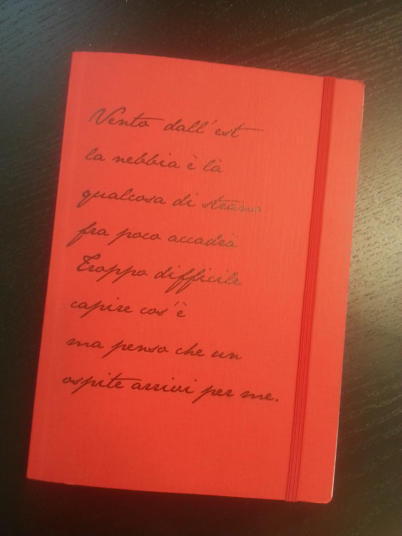 Vento dall'est
la nebbia è là
qualcosa di strano
fra poco accadrà
Troppo difficile
capire cos'è
ma penso che un
ospite arrivi per me.